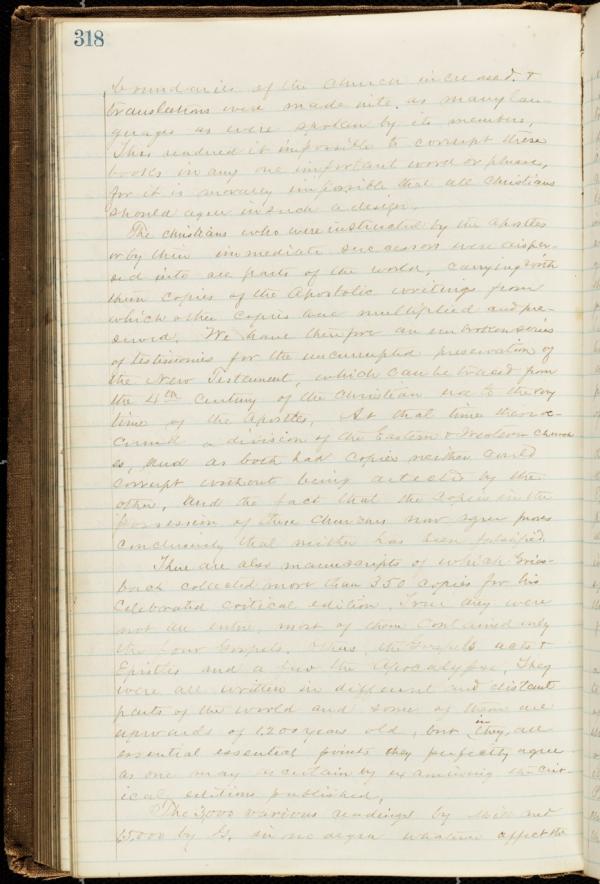 318
boundaries of the Church increased. &
translations were made into. as many lan-
guages as were spoken by its members,
This rendered it impossible to corrupt these
books in any one important word or phrase,
for it is morally impossible that all Christians
should agree in such a design.
The Christians who were instructed by the Apostles
or by their immediate successors were disper-
sed into all parts of the world, carrying with
them copies of the Apostolic writings from
which other copies were multiplied and pre-
served. We have therefore an unbroken series
of testimonies for the uncorrupted preservation of
the New Testament, which can be traced from
the 4th Century of the Christian era to the very
time of the Apostles, At that time there oc-
curred a division of the Eastern & Western Church
es, and as both had copies neither could
corrupt without being detected by the
other, and the fact that the copies in the
possession of these Churches now agree proves
conclusively that neither has been falsified
There are also manuscripts of which Gries-
bach collected more than 350 copies for his
Celebrated critical edition. True they were
not all entire, most of them contained only
the four Gospels. Others, the Gospels acts &
Epistles and a few the Apocalypse. They
were all written in different and distant
parts of the world and some of them are
upwards of 1,200 years old, but in they, all
essential essential points they perfectly agree
as one may ascertain by examining the crit-
ical editions published,
The 3,000 various readings by Mill and
15,000 by G. in no degree whatever affect the